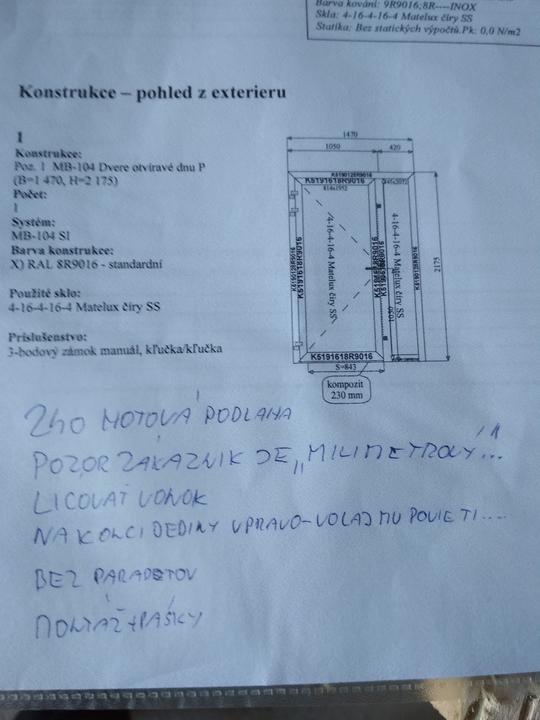 Barva kování: 9R9016;8R----INOX
Skla: 4-16-4-16-4 Matelux číry SS
Statika: Bez statických výpočtů.Pk: 0,0 N/m2
Konstrukce – pohled z exterieru
1
Konstrukce:
Poz. 1 MB-104 Dvere otvíravé dnu P
(B=1 470, H=2 175)
Počet:
1
Systém:
MB-104 SI
Barva konstrukce:
X) RAL 8R9016 - standardní
Použité sklo:
4-16-4-16-4 Matelux číry SS
Príslušenstvo:
3-bodový zámok manuál, kľučka/kľučka
1470
1050
420
K5190128R9016
K5191618R9016
814x1952
K5191618R9016
4-16-4-16-4 Matelux číry SS
K5191618R9016
4-16-4-16-4 Matelux číry SS
2175
K5191618R9016
S=843
kompozit
230 mm
ZHOTOVÁ PODLAHA
POZOR ZÁKAZNIK JE „MILIMETROVÝ"...
LICOVAŤ VONOK
NA KONCI DEDINY VPRAVO-VOLAJ MU POVIE TI....
BEZ PARAPETOV
MONTÁŽ+PÁSKY